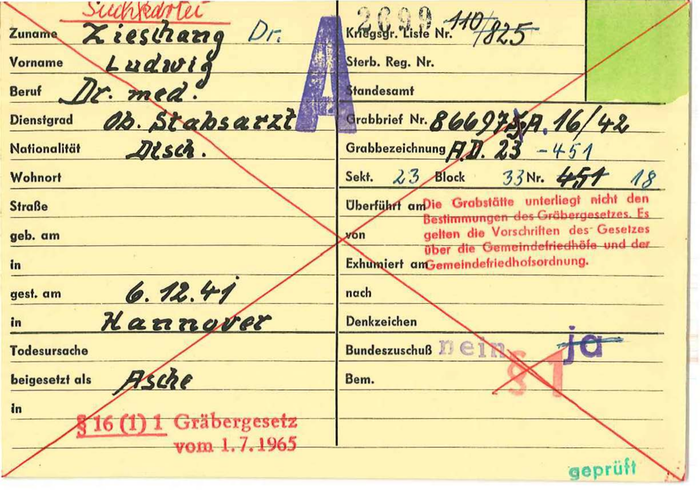 Suchkartei
Zuname Zieschang Dr.
Vorname Ludwig
Beruf Dr. med.
Dienstgrad Ob. Stabsarzt
Nationalität Dtsch.
Wohnort
Straße
geb. am
in
gest. am 6.12.41
in Hannover
Todesursache
beigesetzt als Asche
in
§ 16 (1) 1 Gräbergesetz
vom 1.7.1965
A
2699
Kriegsgr. Liste Nr. 110/825
Sterb. Reg. Nr.
Standesamt
Grabbrief Nr. 866975 A. 16/42
Grabbezeichnung A.D. 23 - 451
Sekt. 23 Block 33 Nr. 451 18
Überführt am
von
Exhumiert am
nach
Die Grabstätte unterliegt nicht den
Bestimmungen des Gräbergesetzes. Es
gelten die Vorschriften des Gesetzes
über die Gemeindefriedhöfe und der
Gemeindefriedhofsordnung.
Denkzeichen
Bundeszuschuß nein ja
§ 1
Bem.
geprüft